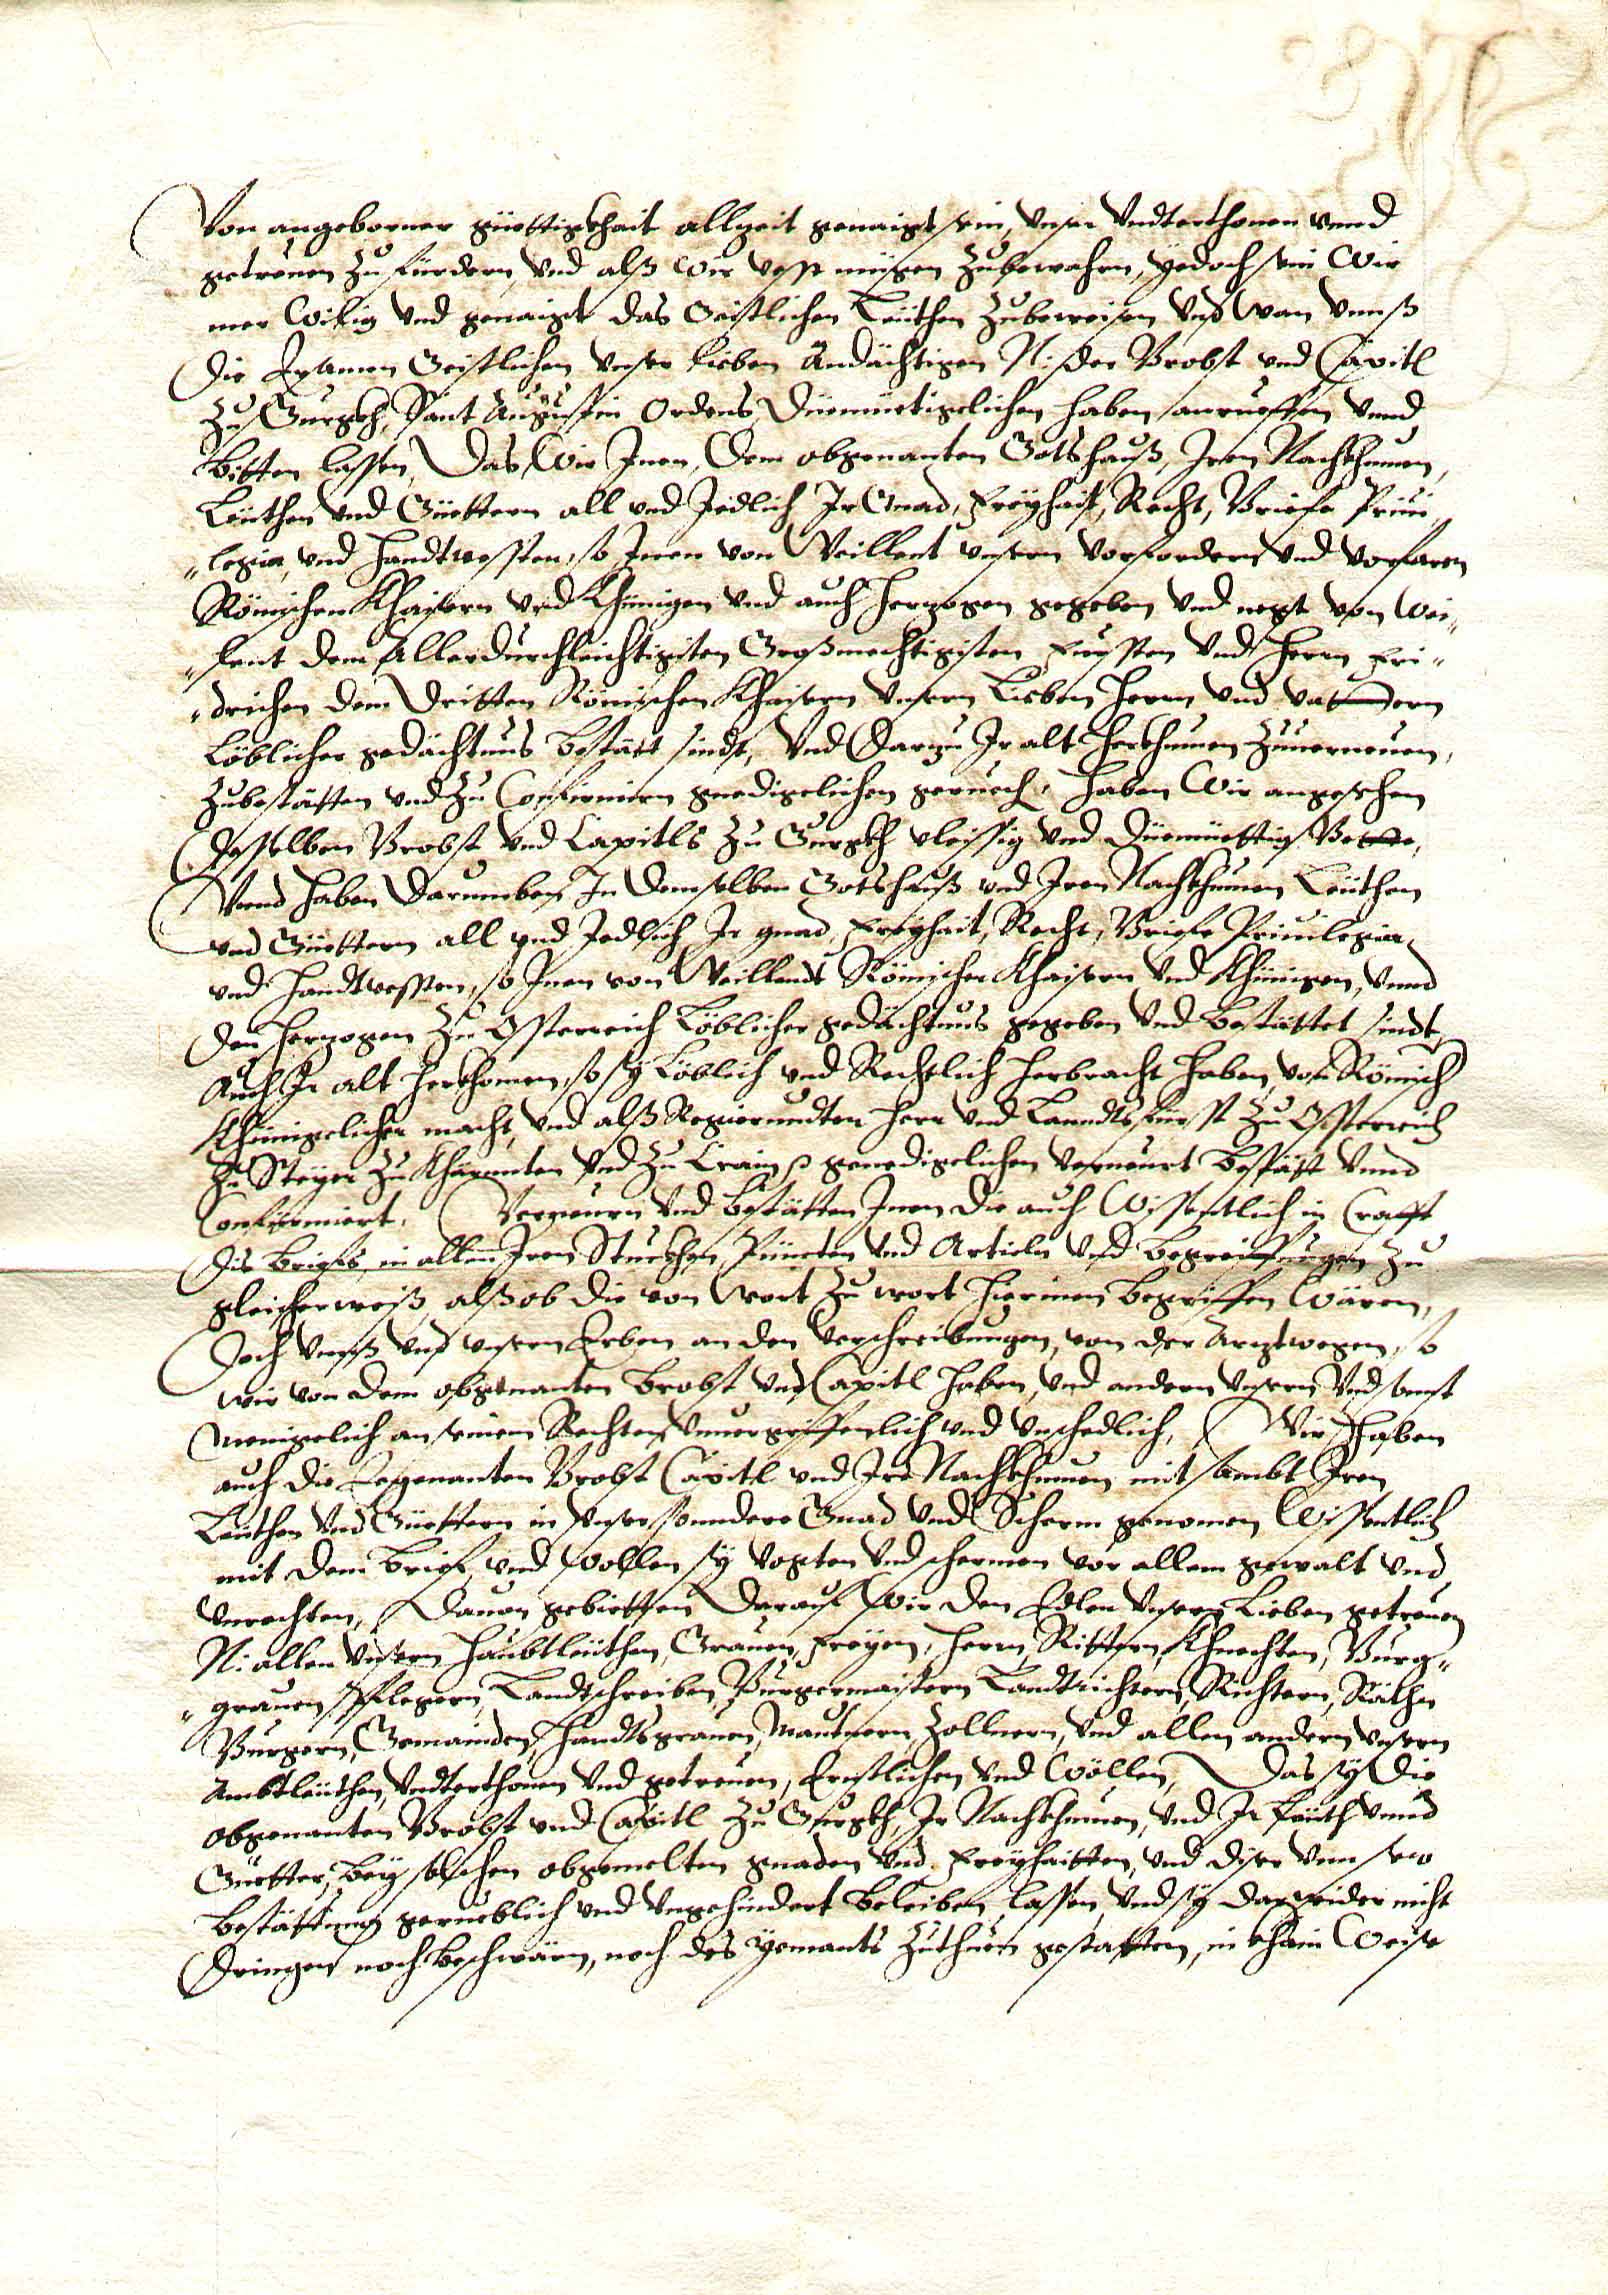 Von angeborner güettigkhait allzeit genaigt sein, unser Undterthonen unnd
getreuen Zu fürdern, und alß wir vesst mügen Zubewahrn, yedoch sein Wir
mer Willig und genaigt das Geistlichen Leüthen Zubeweisen, Und wan unnß
die Ersamen Geistlichen unser lieben Andächtigen N: der Brobst und Capitl
Zu Gurgkh, Sant Augustin Ordens, Diemüetigelichen haben anrueffen unnd
bitten lassen, Das Wir Jnen, Dem obgenanten Gotshauß, Jren Nachkhumen,
Leüthen und Güettern all und Jedlich Jr Gnad, Freyhait, Recht, Briefe Priui
"legia, und Handtvessten, so Jnen von Weillent unsern vorfordern und vorfaren
Römischen Khaisern und Khünigen und auch Herzogen gegeben und negst von Wei"
"lent dem Allerdurchleichtigisten Großmechtigisten Fürssten und Herrn Fri"
"drichen dem Dritten Römischen Khaisern unsern Lieben Herrn und Vattern
Löblicher gedächtnus bestätt sindt, Und Darzu Jr alt Herkhumen Zuuerneuen,
Zubestätten und Zu Confirmirn gnedigelichen geruech. Haben Wir angesehen
desselben Brobst und Capitls Zu Gurgkh vleissig und Diemüettig Bette,
Unnd haben Darumben Jn demselben Gotshauß und Jren Nachkhumen Leüthen
und Güettern all und Jedlich Jr gnad, Freyhait, Recht, Briefe Priuilegia
und Handtvessten, so Jnen von Weillendt Römischen Khaisern und Khünigen, unnd
den Herzogen Zu Osterreich Löblicher gedächtnus gegeben und bestättet sindt,
Auch Jr alt Herkhomen, so sy Löblich und Rechtlich Herbracht haben, von Römisch
Khünigelicher macht, und alß Regierundter Herr und Lanndtsfürsst Zu Ossterreich
Zu Steyer Zu Khärnnten und Zu Crain p genedigelichen Verneuert bestätt unnd
Confirmiert. Verneuen und bestätten Jnen die auch Wissentlich in Crafft
dis briefs, in allen Jren Stuckhen, Puncten und Articln und begreiffungen Zu
gleicherweiß, alß ob die von wort Zu wort hierinen begriffen Wären,
Doch unnß und unsern Erben an den Verschreibungen, von der Arztwegen, so
wir von dem obgenanten Brobst und Capitl haben, und andern unsern Und sonst
menigelich an seinen Rechten unuergriffenlich und unschedlich, Wir haben
auch die Eegenanten Brobst Capitl und Jre Nachkhumen mit sambt Jren
Leüthen und Güettern in unser sonndere Gnad und Scherm genomen Wissentlich
mit dem brief, und wollen sy vogten und schermen vor allem gewalt und
unrechten, Dauon gebietten Darauf Wir den Edlen unsern Lieben getreuen
N: allen unsern Haubtleüthen, Grauen, Freyen, Herrn, Rittern, Khnechten, Burg"
"grauen Pflegern, Landtschreiben, Burgermaistern Landtrichtern, Richtern, Räthn
Burgern, Gemainden, Handtgrauen, Mautnern Zollnern, und allen andern unsern
Ambtleüthen, Undterthonen und getreuen, Ernstlichen und Wöllen, Das sy die
obgenanten Brobst und Capitl Zu Gurgkh, Jr Nachkhumen, und Jr Leüth unnd
Güetter, bey solchen obgemelten gnaden und Freyhaitten, und diser unnser
bestättung gerueblich und ungehindert beleiben lassen, und sy darwider nicht
dringen noch beschwärn, noch des Yemants Zuthuen gestatten, in khain Weise